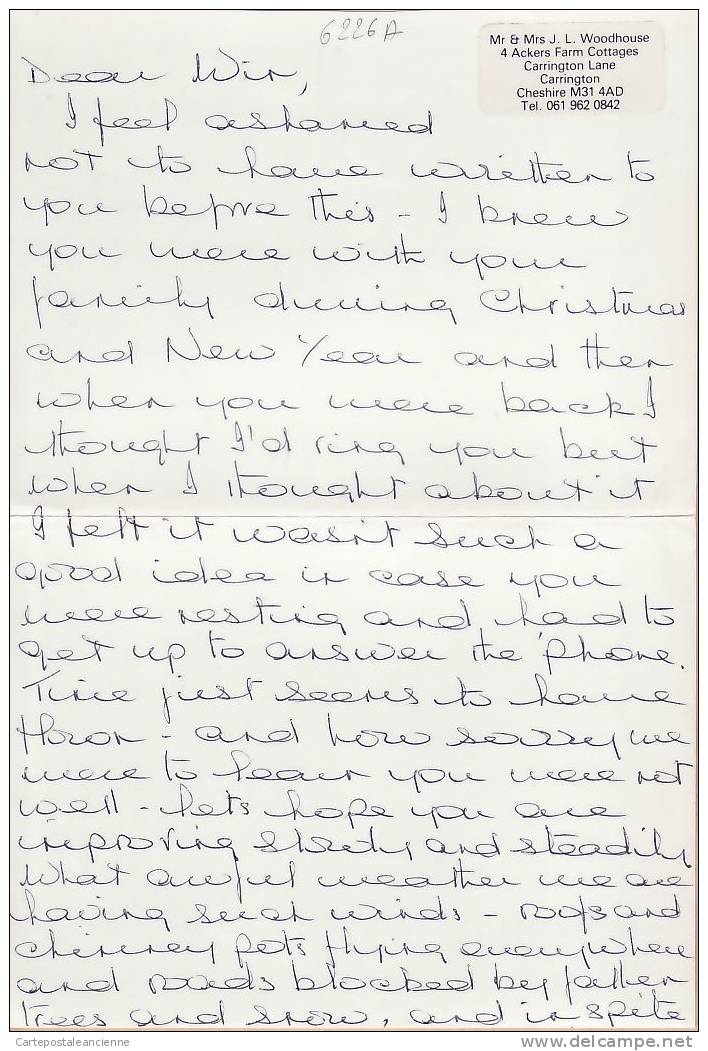 6226A
Mr & Mrs J. L. Woodhouse
4 Ackers Farm Cottages
Carrington Lane
Carrington
Cheshire M31 4AD
Tel. 061 962 0842
Dear Win,
I feel ashamed
not to have written to
you before this - I knew
you were with your
family during Christmas
and New Year and then
when you were back I
thought I'd ring you but
when I thought about it
I felt it wasn't such a
good idea in case you
were resting and had to
get up to answer the 'phone.
Time just seems to have
flown - and how sorry we
were to hear you were not
well - lets hope you are
improving slowly and steadily
What awful weather we are
having such winds - roofs and
chimney pots flying everywhere
and roads blocked by fallen
trees and snow, and in spite
Cartepostaleancienne
DELCAMPE.NET